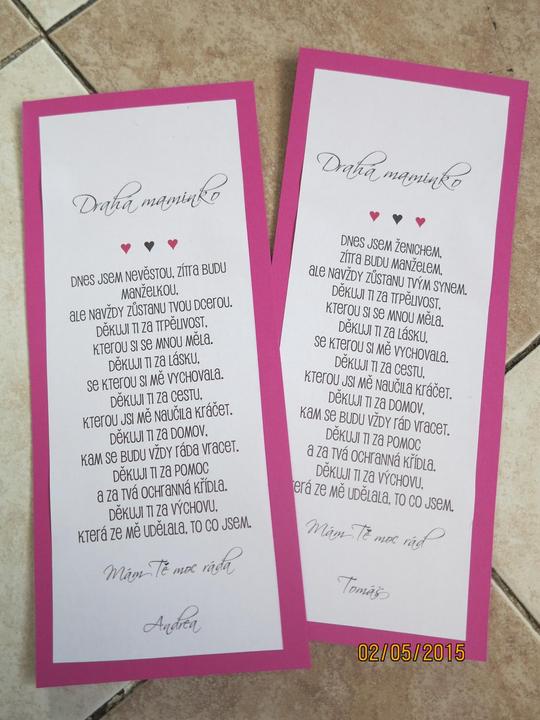 Drahá maminko
Dnes jsem nevěstou, zítra budu
manželkou,
ale navždy zůstanu tvou dcerou.
Děkuji ti za trpělivost,
kterou si se mnou měla.
Děkuji ti za lásku,
se kterou si mě vychovala.
Děkuji ti za cestu,
kterou jsi mě naučila kráčet.
Děkuji ti za domov,
kam se budu vždy ráda vracet.
Děkuji ti za pomoc
a za tvá ochranná křídla.
Děkuji ti za výchovu,
která ze mě udělala, to co jsem.
Mám Tě moc ráda
Andrea
Drahá maminko
Dnes jsem ženichem,
zítra budu manželem,
ale navždy zůstanu tvým synem.
Děkuji ti za trpělivost,
kterou si se mnou měla.
Děkuji ti za lásku,
se kterou si mě vychovala.
Děkuji ti za cestu,
kterou jsi mě naučila kráčet.
Děkuji ti za domov,
kam se budu vždy rád vracet.
Děkuji ti za pomoc
a za tvá ochranná křídla.
Děkuji ti za výchovu,
která ze mě udělala, to co jsem.
Mám Tě moc rád
Tomáš
02/05/2015